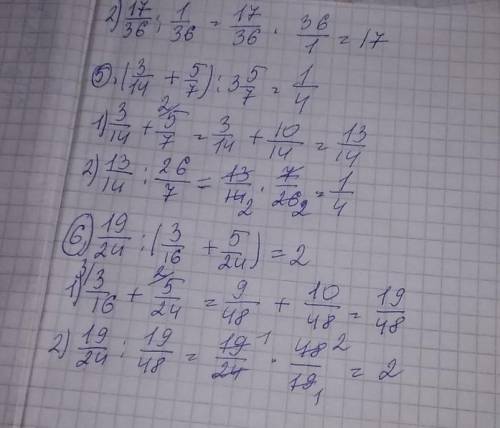 2) 17/36 : 1/36 = 17/36 · 36/1 = 17
5. (3/14 + 5/7) : 3 5/7 = 1/4
1) 3/14 + 2/ 5/7 = 3/14 + 10/14 = 13/14
2) 13/14 : 26/7 = 13/14 2 · 7/26 2 = 1/4
6) 19/24 : (3/16 + 5/24) = 2
1) 3/ 3/16 + 2/ 5/24 = 9/48 + 10/48 = 19/48
2) 19/24 : 19/48 = 19 1/24 · 48 2/19 1 = 2